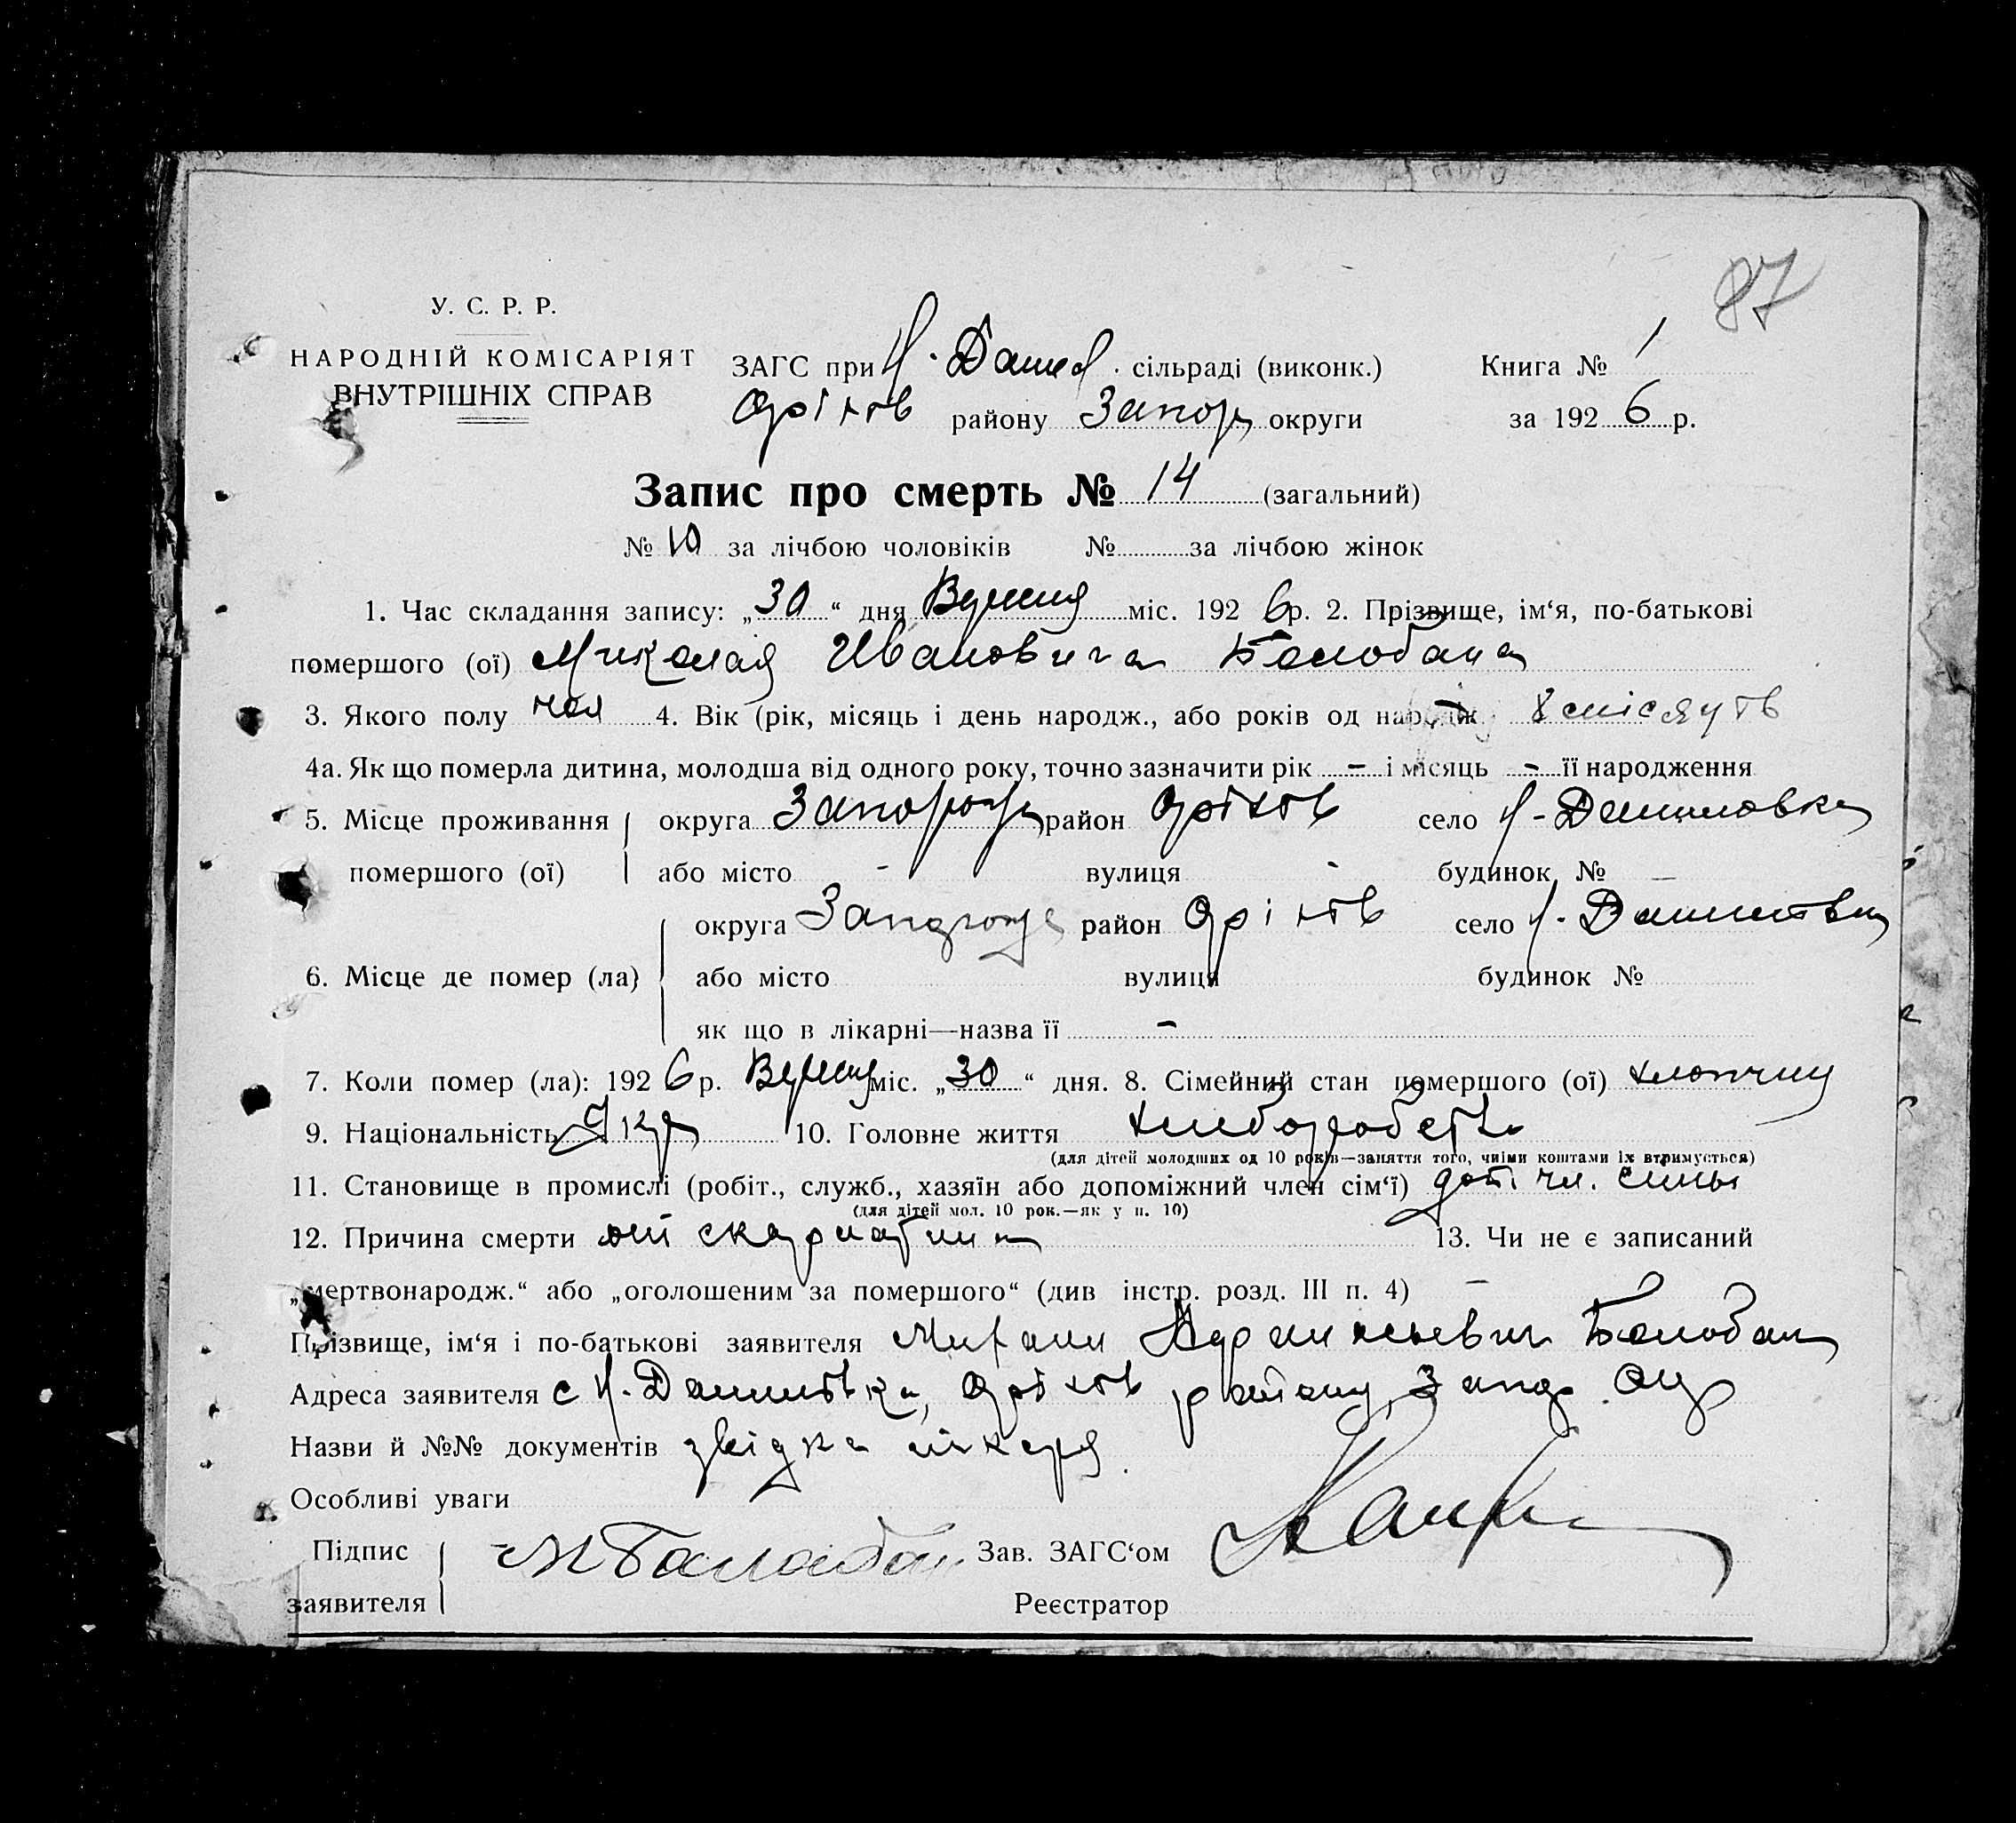 87
У. С. Р. Р.
НАРОДНІЙ КОМІСАРІЯТ
ВНУТРІШНІХ СПРАВ
ЗАГС при Н. Данил. сільраді (виконк.)
Оріхів району Запор округи
Книга № 1
за 1926 р.
Запис про смерть № 14 (загальний)
№ 10 за лічбою чоловіків № за лічбою жінок
1. Час складання запису: „30“ дня Вересня міс. 1926 р. 2. Прізвище, ім‘я, по-батькові
помершого (ої) Миколая Ивановича Белобана
3. Якого полу чол 4. Вік (рік, місяць і день народж., або років од народж 8 місяців
4а. Як що померла дитина, молодша від одного року, точно зазначити рік - і місяць - її народження
5. Місце проживання округа Запорож район Оріхів село Н-Даниловка
помершого (ої) або місто - вулиця - будинок № —
округа Запорож район Оріхів село Н. Данилівка
6. Місце де помер (ла) або місто вулиця будинок №
як що в лікарні—назва її -
7. Коли помер (ла): 1926 р. Вересня міс. „30“ дня. 8. Сімейний стан помершого (ої) хлопчик
9. Національність Укр 10. Головне життя хліборобств
(для дітей молодших од 10 років—заняття того, чиїми коштами їх втримується)
11. Становище в промислі (робіт., служб., хазяїн або допоміжний член сім‘ї) доп. чл. сімьи
(для дітей мол. 10 рок.—як у п. 10)
12. Причина смерти от скарлатини 13. Чи не є записаний
„мертвонародж.“ або „оголошеним за помершого“ (див інстр. розд. III п. 4) —
Прізвище, ім‘я і по-батькові заявителя Белобан
Адреса заявителя с Н. Данилівка, Оріхів району, Запор. Окр
Назви й №№ документів звідка лікаря
Особливі уваги
Підпис
заявителя М Балабан Зав. ЗАГС‘ом
Реєстратор